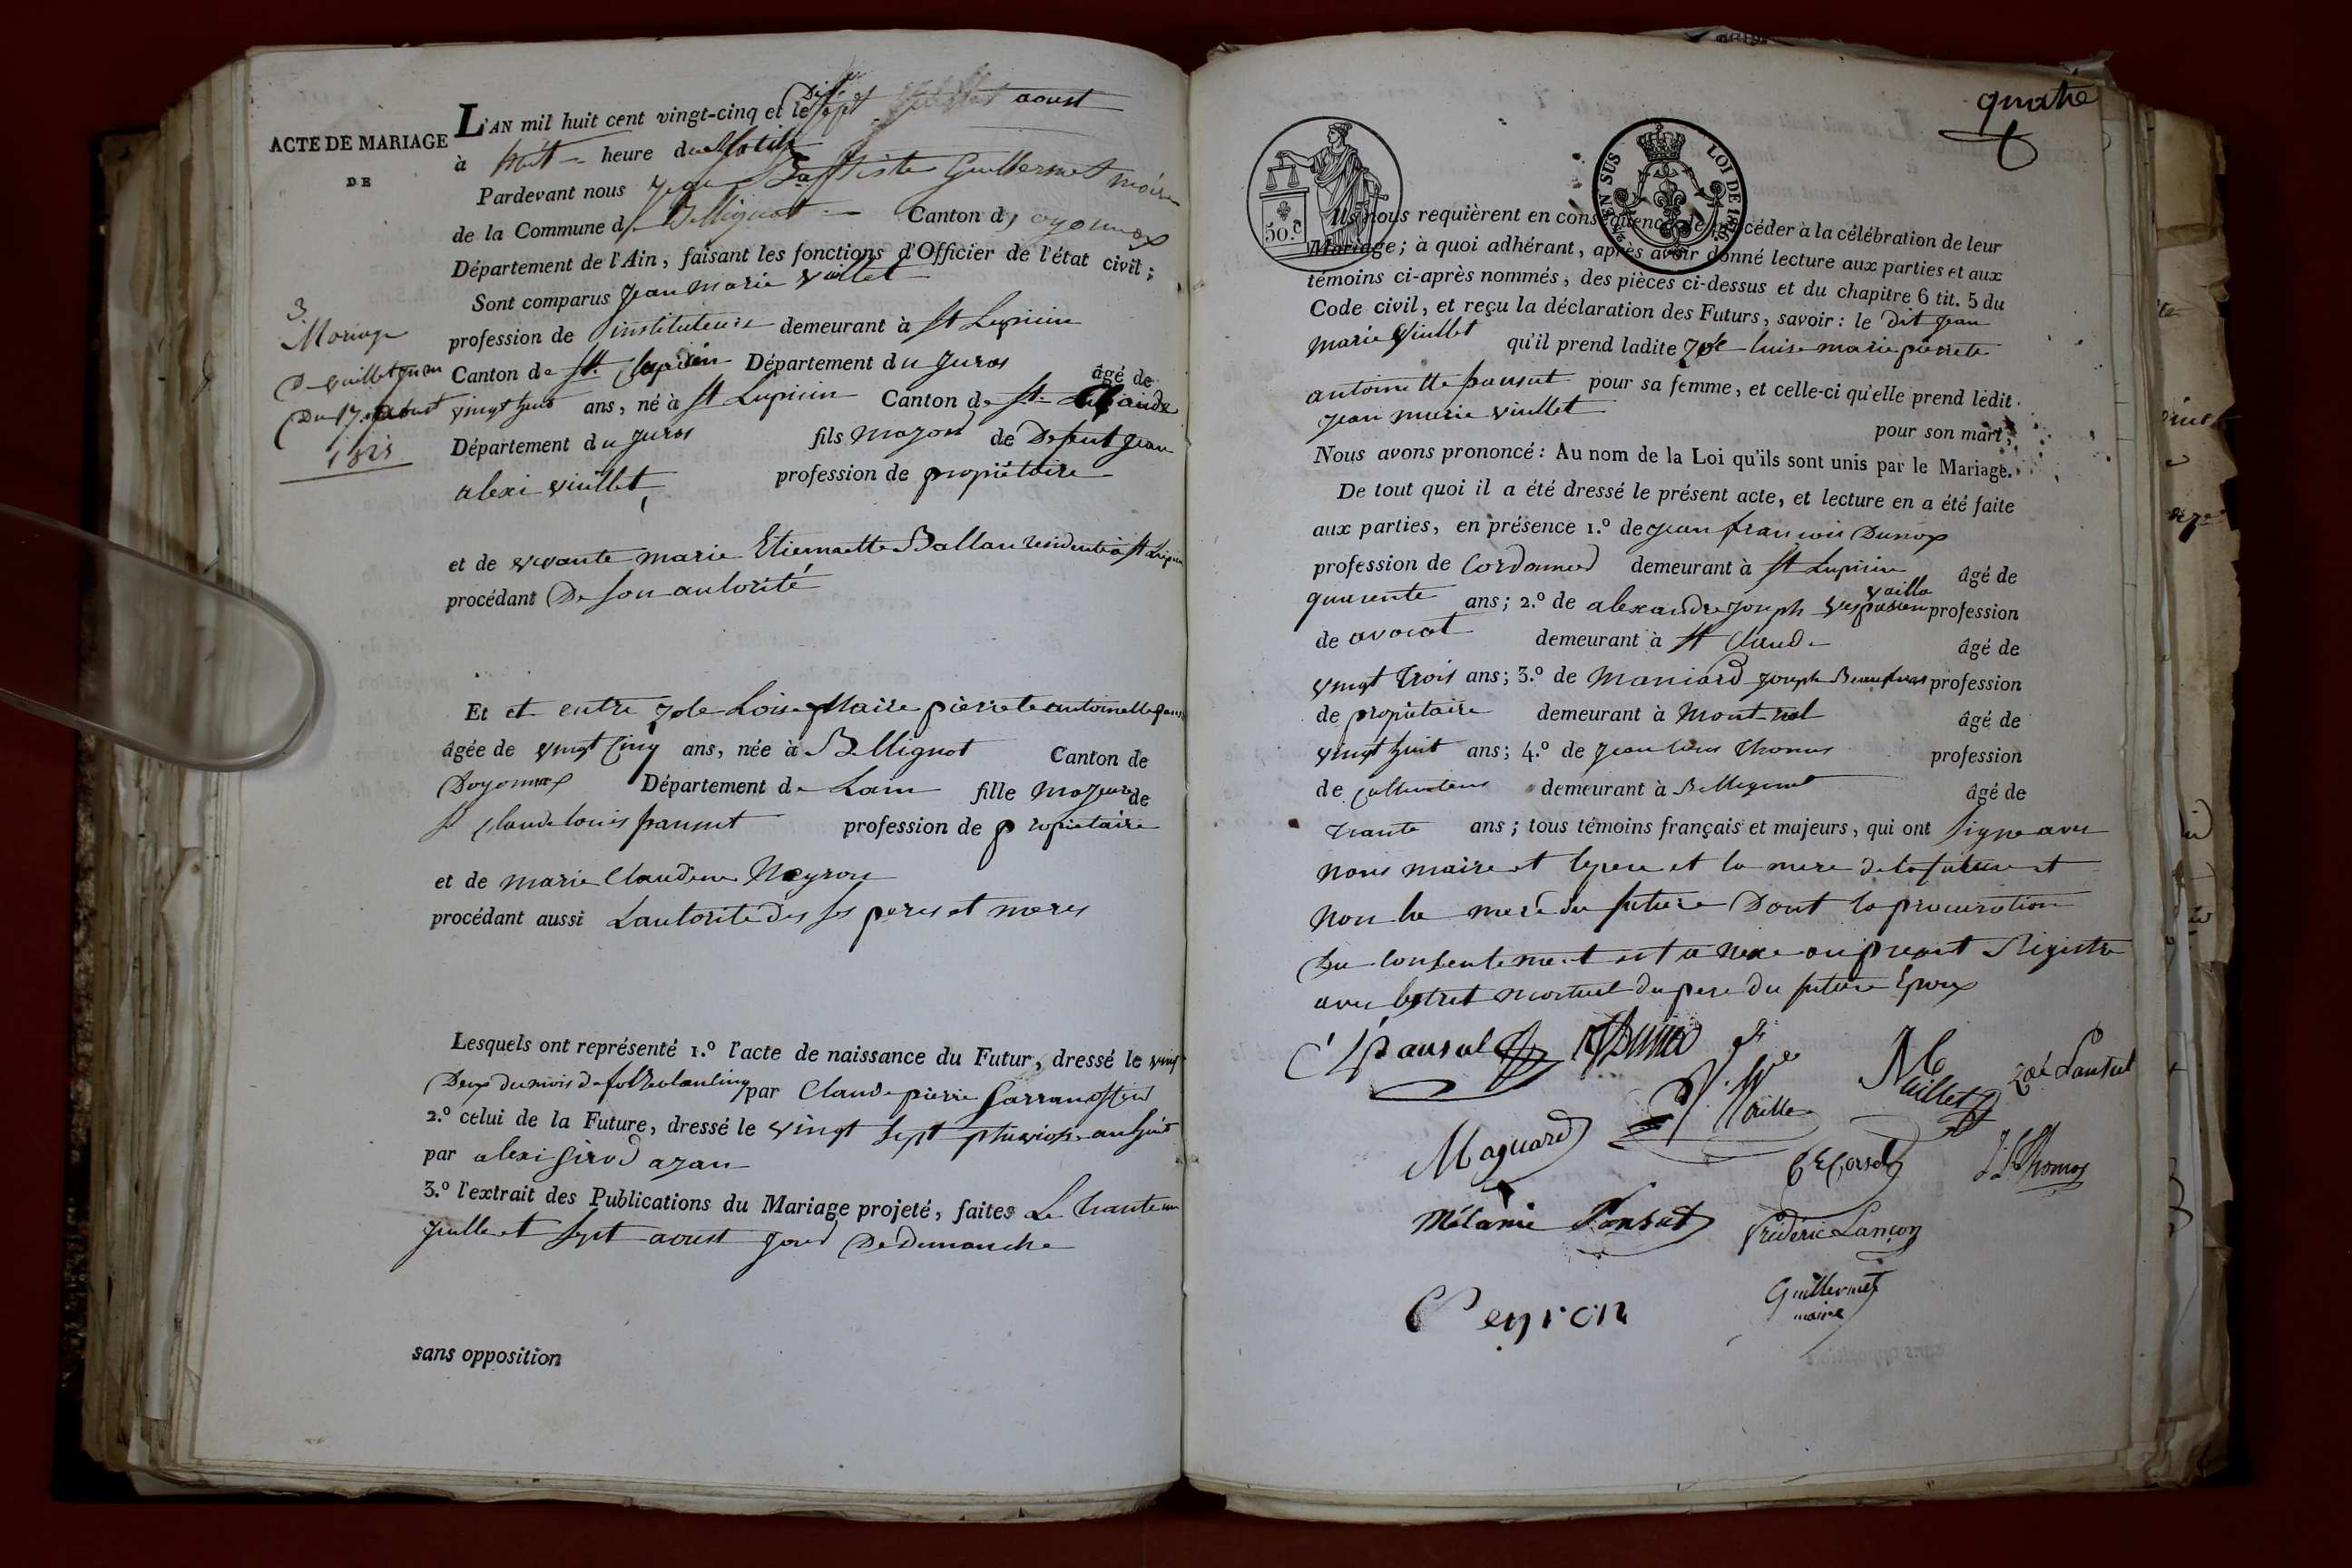 ACTE DE MARIAGE
DE
3.
Mariage
De Vuillet Jean
Du 17. aoust
1825
L'AN mil huit cent vingt-cinq et le Dix sept aoust
à huit heure du Matin
Pardevant nous Jean Baptiste Guillermet maire
de la Commune de Bellignat Canton d'oyonnax
Département de l'Ain, faisant les fonctions d'Officier de l'état civil;
Sont comparus Jean Marie Vuillet
profession de instituteur demeurant à St Lupicin
Canton de St. Département du Jura âgé de
vingt huit ans, né à St Lupicin Canton de St Claude
Département du Jura fils majeur de Defunt Jean
alexi Vuillet profession de propriétaire
et de vivante marie Etiennette Ballan residente à St Lupicin
procédant De son autorité
Et et entre Loise Marie pierrete antoinette
âgée de vingt Cinq ans, née à Bellignat Canton de
Doyonnax Département de Lain fille majeure de
Sr Claude Louis pansut profession de propriétaire
et de marie Claudine Neyron
procédant aussi Lautorité des ses peres et meres
Lesquels ont représenté 1.º l'acte de naissance du Futur, dressé le vingt
Deux du mois de par Claude pierre
2.º celui de la Future, dressé le vingt sept pluviose an huit
par alexi girod
3.º l'extrait des Publications du Mariage projeté, faites Le trante un
Juillet et Sept aoust Jour De Dimanche
sans opposition
quatre
50.c
2/10 EN SUS LOI DE 1816
Ils nous requièrent en conséquence de procéder à la célébration de leur
Mariage; à quoi adhérant, après avoir donné lecture aux parties et aux
témoins ci-après nommés, des pièces ci-dessus et du chapitre 6 tit. 5 du
Code civil, et reçu la déclaration des Futurs, savoir: le dit Jean
Marie Viullet qu'il prend ladite luise marie pierrete
antoinette pansut pour sa femme, et celle-ci qu'elle prend ledit
Jean marie viullet
pour son mari,
Nous avons prononcé: Au nom de la Loi qu'ils sont unis par le Mariage.
De tout quoi il a été dressé le présent acte, et lecture en a été faite
aux parties, en présence 1.º de Jean françois Dunox
profession de Cordonnier demeurant à St Lupicin âgé de
quarente ans; 2.º de alexandre Joseph Vespasien vaille profession
de avocat demeurant à St Claude âgé de
vingt trois ans; 3.º de Maniard Joseph profession
de propriétaire demeurant à Mont-réal âgé de
vingt huit ans; 4.º de Jean Louis Thomas profession
de Cultivateur demeurant à Bellignat âgé de
trante ans; tous témoins français et majeurs, qui ont signe avec
nous maire et le pere et la mere de la future et
non la mere du future Dont la procuration
Du consentement est a nexe au present Registre
avec mortuel du pere du future Epoux
C L pansut
Vaille
Vuillet
Zoé Pansut
Maguard
J L Thomas
Mélanie Pansut
Fréderic Lançon
Peyron
Guillermet
maire